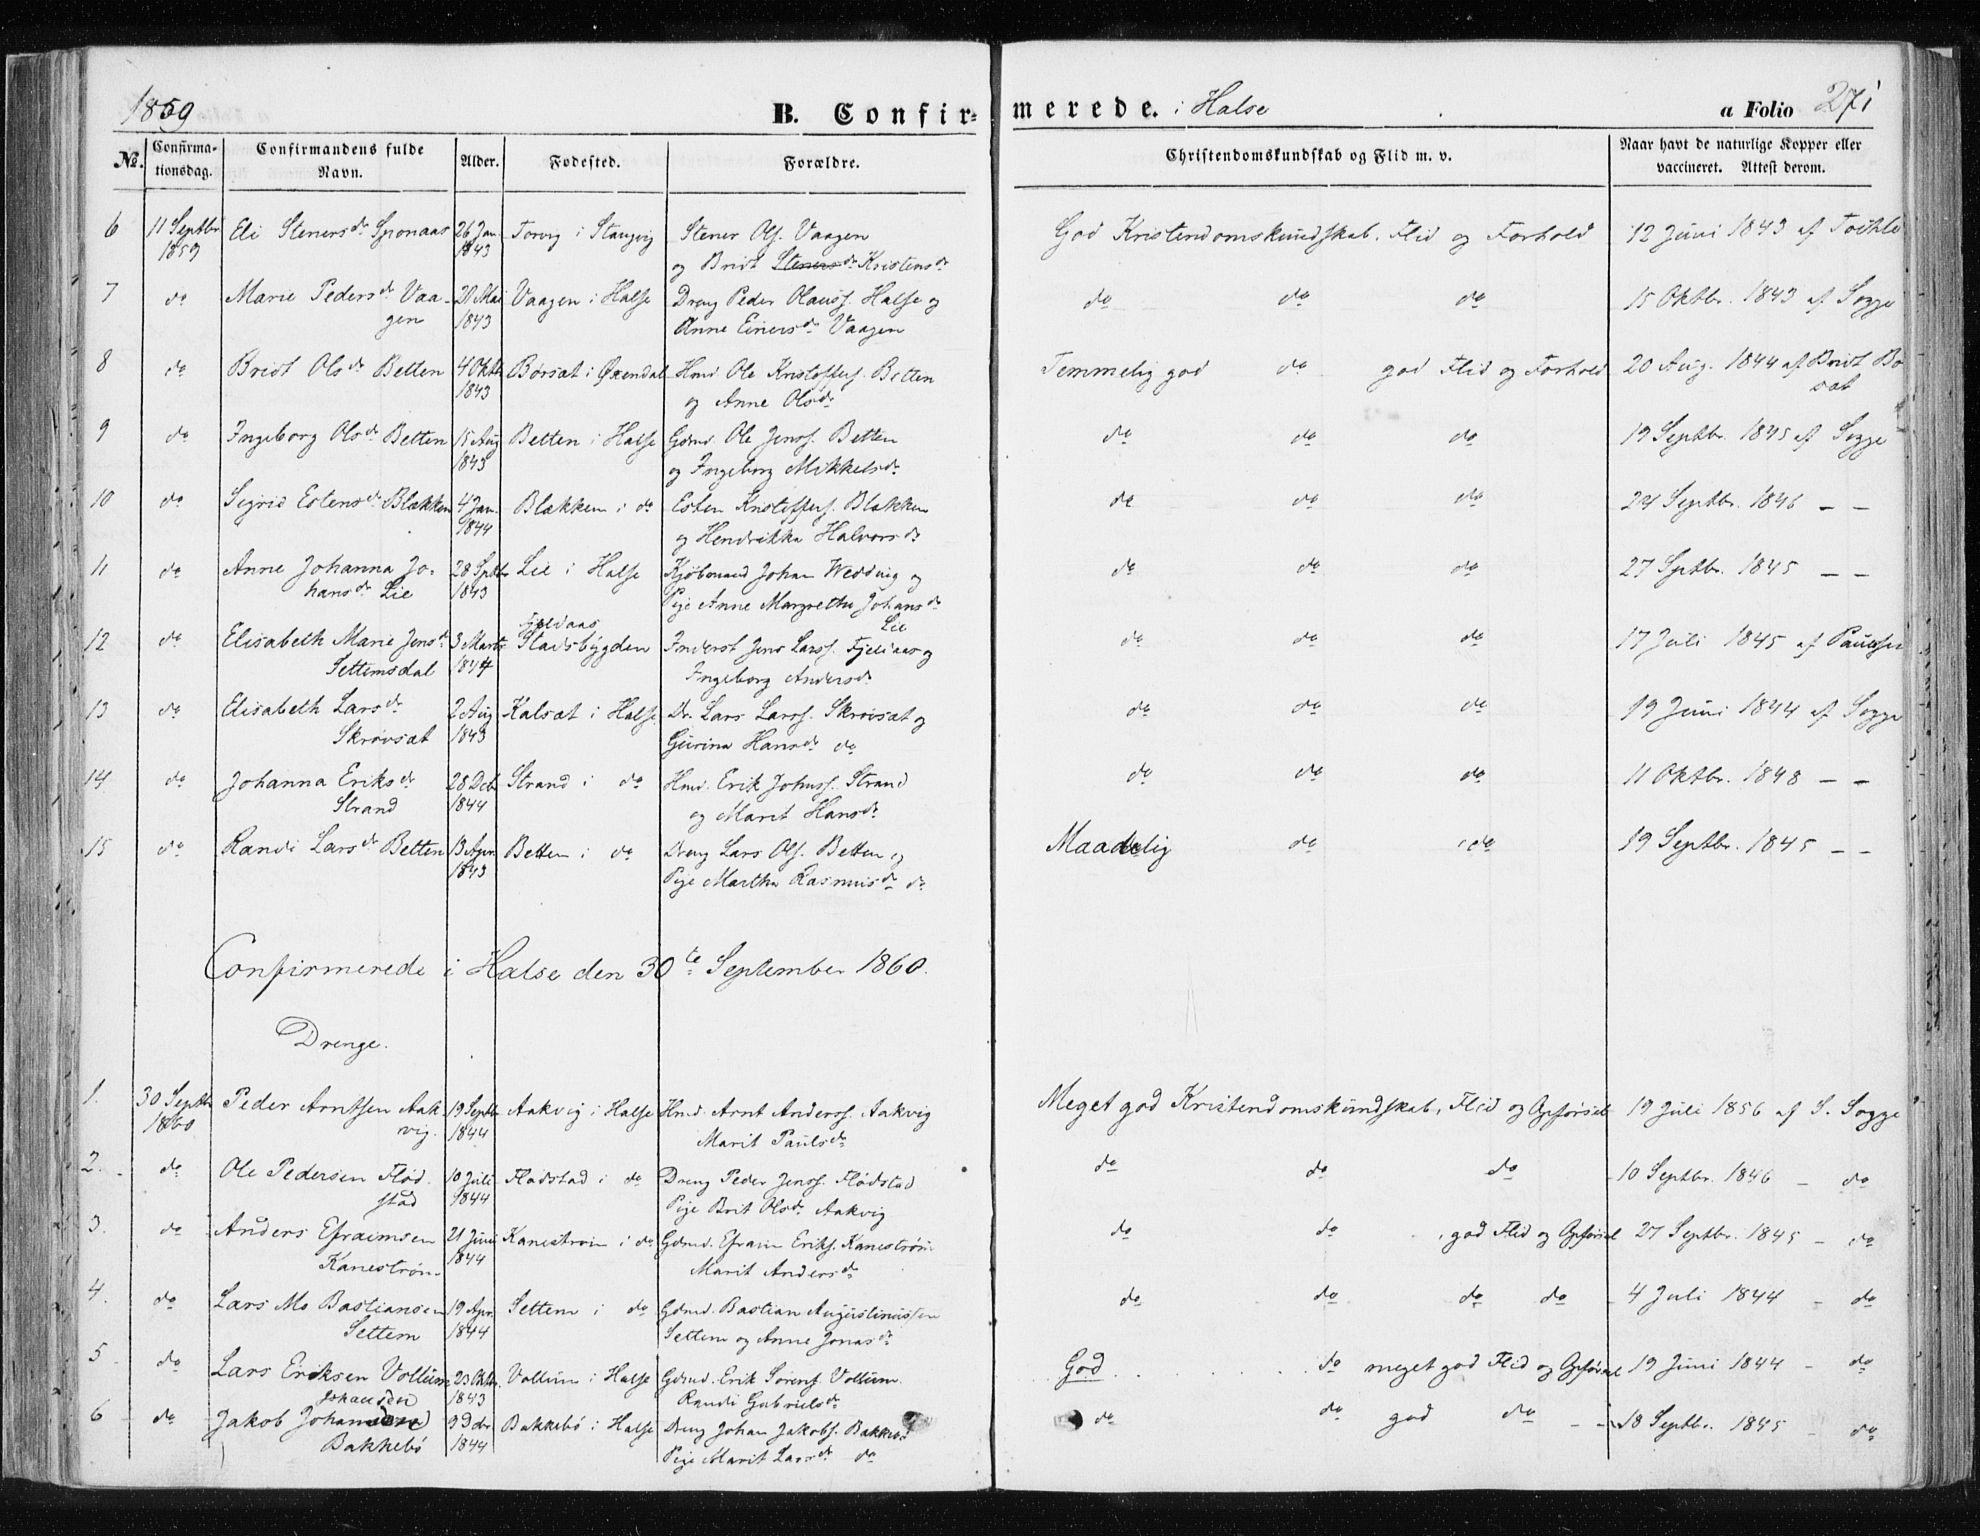 1859 B. Confirmerede. i Halse a Folio 271
No. Confirmationsdag. Confirmandens fulde Navn. Alder. Fødested. Forældre. Christendomskundskab og Flid m. v. Naar havt de naturlige Kopper eller vaccineret. Attest derom.
6 11 Septbr Eli Stenersdr Sponaas 26 Jan. Torvig i Stangvig Stener Ols. Vaagen God Kristendomskundskab, Flid og Forhold 12 Juni 1843 af
1859 1843 og Brit Stenersdr Kristensdr
7 do Marie Pedersdr Vaa- 20 Mai Vaagen i Halse Dreng Peder Olauss. Halse og do do do 15 Oktbr. 1843 af Sogge
gen 1843 Anne Einersdr Vaagen
8 do Brit Olsdr Betten 4 Oktb Børsæt i Øxendal Hmd Ole Kristoffers. Betten Temmelig god do god Flid og Forhold 20 Aug. 1844 af Brit Bø
1843 og Anne Olsdr sæt
9 do Ingeborg Olsdr Betten 15 Aug Betten i Halse Gdmd. Ole Jenss. Betten do do do 19 Septbr. 1845 af Sogge
1843 og Ingeborg Mikkelsdr
10 do Sigrid Estensdr Blækken 4 Jan. Blækken i do Esten Kristoffers. Blækken do do do 24 Septbr. 1846 – –
1844 og Hendrikka Halvorsdr
11 do Anne Johanna Jo- 28 Septbr Lie i Halse Kjøbmand Johan Wedvig og do do do 27 Septbr. 1845 – –
hansdr Lie 1843 Pige Anne Margrethe Johansdr
Fjeldaas Lie
12 do Elisabeth Marie Jensdr 3 Marts Stadsbygden Inderst Jens Larss. Fjeldaas og do do do 17 Juli 1845 af Paulsen
Settemsdal 1844 Ingeborg Andersdr
13 do Elisabeth Larsdr 2 Aug Kalsæt i Halse Dr. Lars Larss. Skrøvsæt og do do do 19 Juni 1844 af Sogge
Skrøvsæt 1843 Gjurina Hansdr do
14 do Johanna Eriksdr 28 Deb Strand i do Hmd. Erik Johnss. Strand do do do 11 Oktbr. 1848 – –
Strand 1844 og Marit Hansdr
15 do Randi Larsdr Betten 13 Apr. Betten i do Dreng Lars Ols. Betten og Maadelig do do 19 Septbr. 1845 – –
1843 Pige Martha Rasmusdr do
Confirmerede i Halse den 30te September 1860.
Drenge.
1. 30 Septbr Peder Arntsen Aak- 19 Septbr Aakvig i Halse Hmd. Arnt Anderss. Aakvig Meget god Kristendomskundskab, Flid og Opførsel 19 Juli 1856 af S. Sogge
1860 vig. 1844 Marit Paulsdr
2. do Ole Pedersen Flød- 10 Juli Flødstad i do Dreng Peder Jenss. Flødstad do do do 10 Septbr. 1846 – do
stad 1844 Pige Brit Olsdr Aakvig
3. do Anders Efraimsen 21 Juni Kanestrøm i do Gdmd. Efraim Eriks. Kanestrøm do do , god Flid og Opførsel 27 Septbr. 1845 – do
Kanestrøm 1844 Marit Andersdr
4. do Lars Mo Bastiansen 19 Apr. Settem i do Gdmd. Bastian Augustinussen do do do do 4 Juli 1844 – do
Settem 1844 Settem og Anne Jonasdr
5 do Lars Eriksen Vollum 23 Oktbr. Vollum i Halse Gdmd. Erik Sørens. Vollum God do meget god Flid og Opførsel 19 Juni 1844 – do
Johansen 1843 Randi Gabrielsdr
6 do Jakob 9 Dbr. Bakkebø i Halse Dreng Johan Jakobs. Bakkebø do do god do 18 Septbr. 1845 – do
Bakkebø 1844 Pige Marit Larsdr do